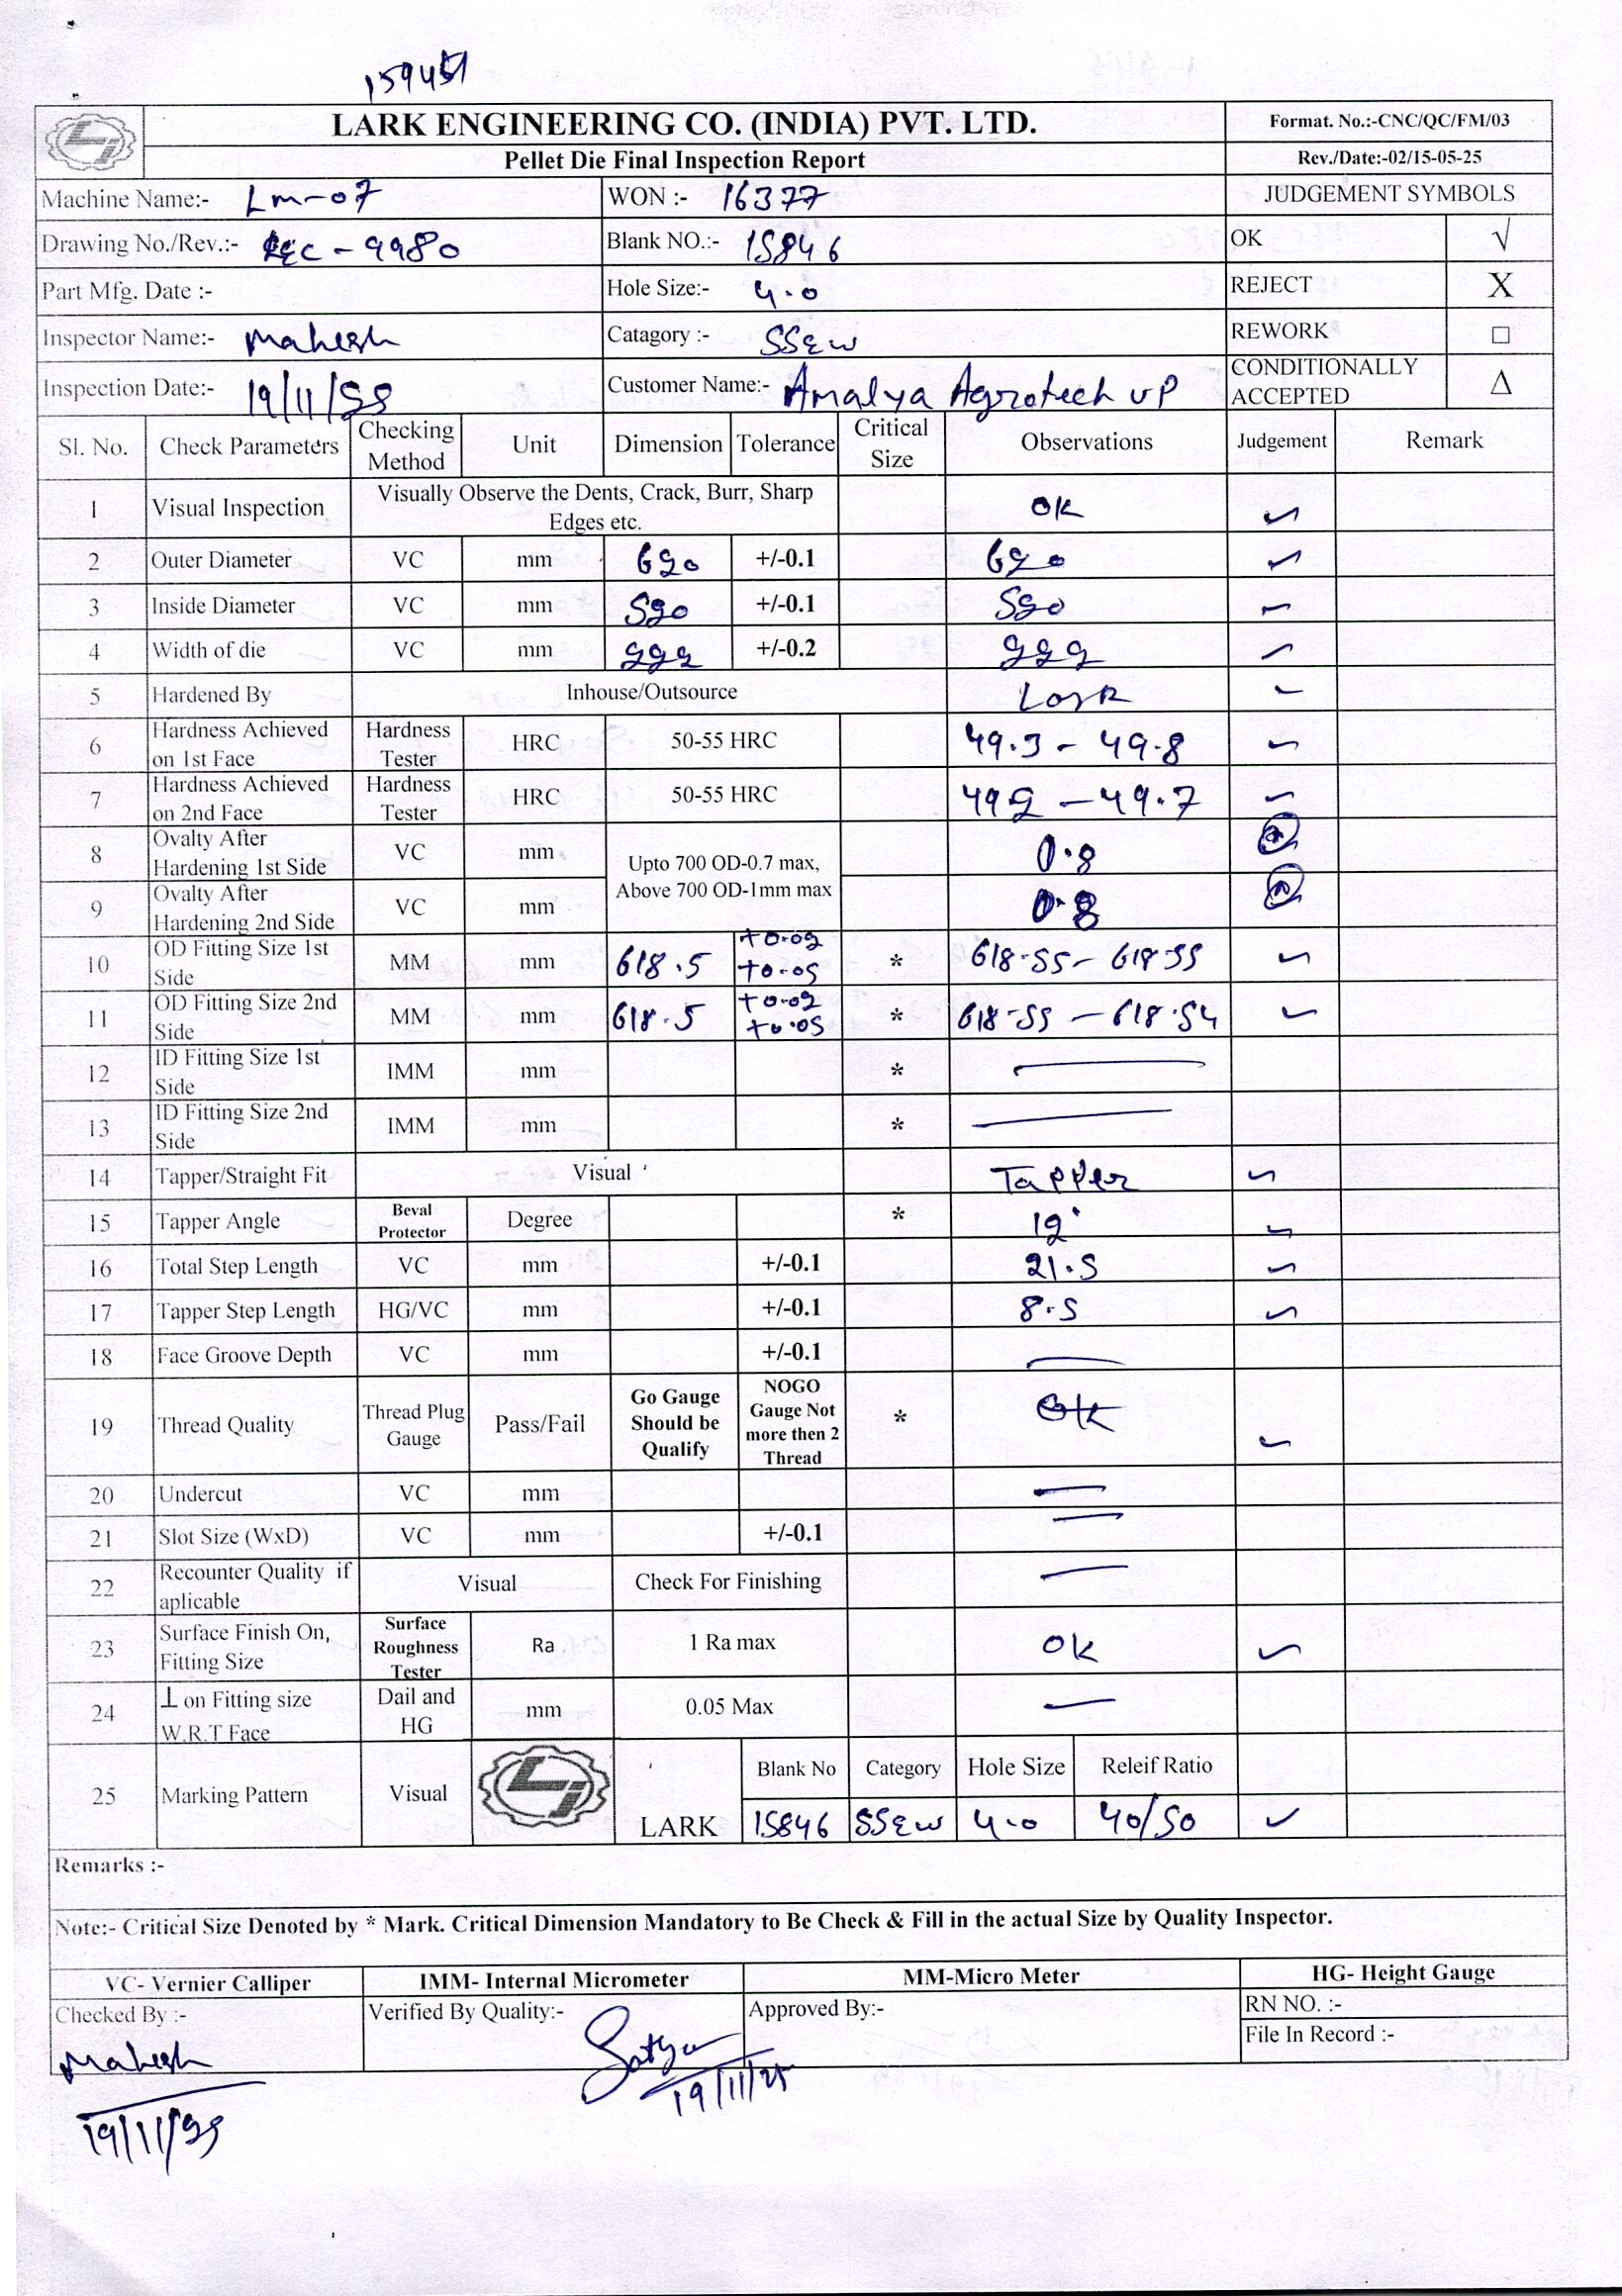 159451
LARK ENGINEERING CO. (INDIA) PVT. LTD.
Format. No.:-CNC/QC/FM/03
Pellet Die Final Inspection Report
Rev./Date:-02/15-05-25
Machine Name:- Lm-07 WON :- 16377 JUDGEMENT SYMBOLS
Drawing No./Rev.:- LEC-9980 Blank NO.:- 15846 OK √
Part Mfg. Date :- Hole Size:- 4.0 REJECT X
Inspector Name:- Mahesh Catagory :- SSEW REWORK □
Inspection Date:- 19/11/25 Customer Name:- Amalya Agrotech UP CONDITIONALLY
ACCEPTED Δ
Sl. No. Check Parameters Checking Method Unit Dimension Tolerance Critical Size Observations Judgement Remark
1 Visual Inspection Visually Observe the Dents, Crack, Burr, Sharp Edges etc. OK ✓
2 Outer Diameter VC mm 620 +/-0.1 620 ✓
3 Inside Diameter VC mm 520 +/-0.1 520 ✓
4 Width of die VC mm 222 +/-0.2 222 ✓
5 Hardened By Inhouse/Outsource Lark ✓
6 Hardness Achieved on 1st Face Hardness Tester HRC 50-55 HRC 49.3 - 49.8 ✓
7 Hardness Achieved on 2nd Face Hardness Tester HRC 50-55 HRC 49.2 - 49.7 ✓
8 Ovalty After Hardening 1st Side VC mm Upto 700 OD-0.7 max, Above 700 OD-1mm max 0.8
9 Ovalty After Hardening 2nd Side VC mm 0.8
10 OD Fitting Size 1st Side MM mm 618.5 +0.02 +0.05 * 618.55 - 618.55 ✓
11 OD Fitting Size 2nd Side MM mm 618.5 +0.02 +0.05 * 618.55 - 618.54 ✓
12 ID Fitting Size 1st Side IMM mm * —
13 ID Fitting Size 2nd Side IMM mm * —
14 Tapper/Straight Fit Visual Tapper ✓
15 Tapper Angle Beval Protector Degree * 12° ✓
16 Total Step Length VC mm +/-0.1 21.5 ✓
17 Tapper Step Length HG/VC mm +/-0.1 8.5 ✓
18 Face Groove Depth VC mm +/-0.1 —
19 Thread Quality Thread Plug Gauge Pass/Fail Go Gauge Should be Qualify NOGO Gauge Not more then 2 Thread * OK ✓
20 Undercut VC mm —
21 Slot Size (WxD) VC mm +/-0.1 —
22 Recounter Quality if aplicable Visual Check For Finishing —
23 Surface Finish On, Fitting Size Surface Roughness Tester Ra 1 Ra max OK ✓
24 ⊥ on Fitting size W.R.T Face Dail and HG mm 0.05 Max —
25 Marking Pattern Visual LARK Blank No Category Hole Size Releif Ratio
15846 SSEW 4.0 40/50 ✓
Remarks :-
Note:- Critical Size Denoted by * Mark. Critical Dimension Mandatory to Be Check & Fill in the actual Size by Quality Inspector.
VC- Vernier Calliper IMM- Internal Micrometer MM-Micro Meter HG- Height Gauge
Checked By :- Verified By Quality:- Approved By:- RN NO. :-
File In Record :-
Mahesh Satya
19/11/25 19/11/25